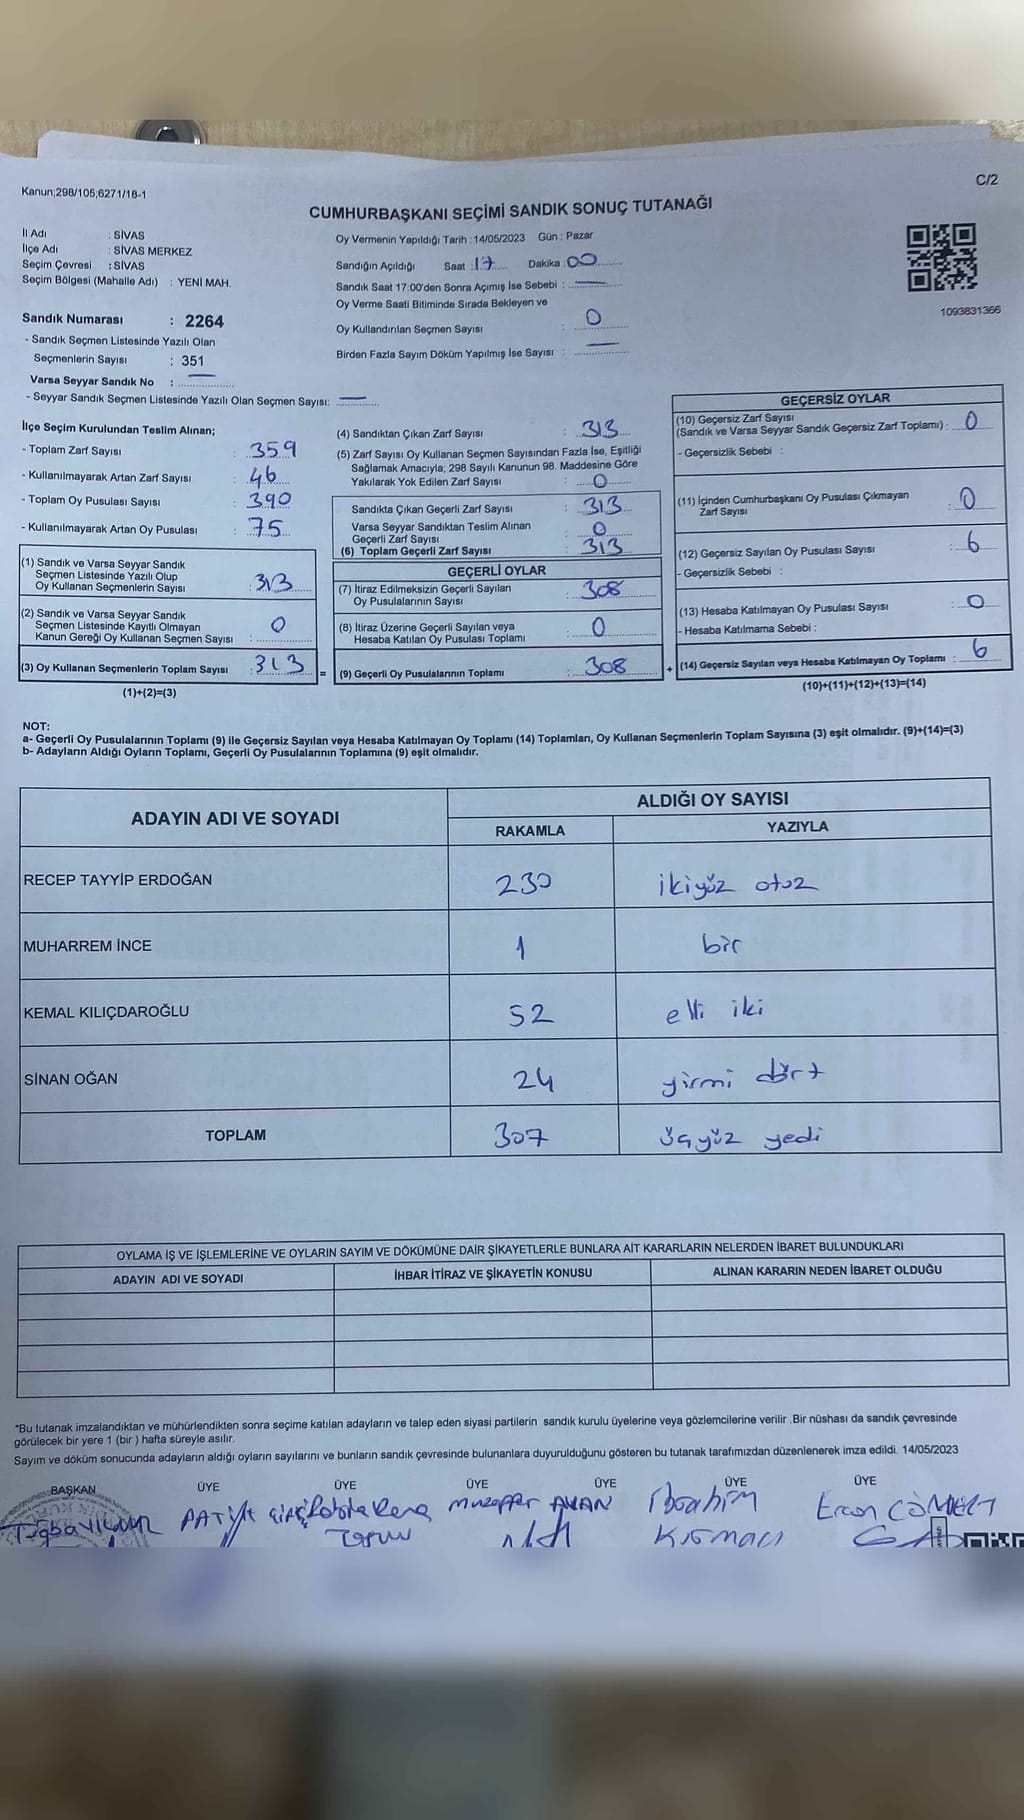 C/2
Kanun;298/105;6271/18-1
CUMHURBAŞKANI SEÇİMİ SANDIK SONUÇ TUTANAĞI
İl Adı : SİVAS
İlçe Adı : SİVAS MERKEZ
Seçim Çevresi : SİVAS
Seçim Bölgesi (Mahalle Adı) : YENİ MAH.
Sandık Numarası : 2264
- Sandık Seçmen Listesinde Yazılı Olan
Seçmenlerin Sayısı : 351
Varsa Seyyar Sandık No : —
- Seyyar Sandık Seçmen Listesinde Yazılı Olan Seçmen Sayısı: —
Oy Vermenin Yapıldığı Tarih : 14/05/2023 Gün : Pazar
Sandığın Açıldığı Saat : 17 Dakika : 00
Sandık Saat 17:00'den Sonra Açımış İse Sebebi : —
Oy Verme Saati Bitiminde Sırada Bekleyen ve
Oy Kullandırılan Seçmen Sayısı : 0
Birden Fazla Sayım Döküm Yapılmış İse Sayısı : —
1093831366
İlçe Seçim Kurulundan Teslim Alınan;
- Toplam Zarf Sayısı : 359
- Kullanılmayarak Artan Zarf Sayısı : 46
- Toplam Oy Pusulası Sayısı : 390
- Kullanılmayarak Artan Oy Pusulası : 75
(1) Sandık ve Varsa Seyyar Sandık
Seçmen Listesinde Yazılı Olup
Oy Kullanan Seçmenlerin Sayısı : 313
(2) Sandık ve Varsa Seyyar Sandık
Seçmen Listesinde Kayıtlı Olmayan
Kanun Gereği Oy Kullanan Seçmen Sayısı : 0
(3) Oy Kullanan Seçmenlerin Toplam Sayısı : 313
(1)+(2)=(3)
(4) Sandıktan Çıkan Zarf Sayısı : 313
(5) Zarf Sayısı Oy Kullanan Seçmen Sayısından Fazla İse, Eşitliği
Sağlamak Amacıyla; 298 Sayılı Kanunun 98. Maddesine Göre
Yakılarak Yok Edilen Zarf Sayısı : 0
Sandıkta Çıkan Geçerli Zarf Sayısı : 313
Varsa Seyyar Sandıktan Teslim Alınan
Geçerli Zarf Sayısı : 0
(6) Toplam Geçerli Zarf Sayısı : 313
GEÇERLİ OYLAR
(7) İtiraz Edilmeksizin Geçerli Sayılan
Oy Pusulalarının Sayısı : 308
(8) İtiraz Üzerine Geçerli Sayılan veya
Hesaba Katılan Oy Pusulası Toplamı : 0
= (9) Geçerli Oy Pusulalarının Toplamı : 308
GEÇERSİZ OYLAR
(10) Geçersiz Zarf Sayısı
(Sandık ve Varsa Seyyar Sandık Geçersiz Zarf Toplamı) : 0
- Geçersizlik Sebebi :
(11) İçinden Cumhurbaşkanı Oy Pusulası Çıkmayan
Zarf Sayısı : 0
(12) Geçersiz Sayılan Oy Pusulası Sayısı : 6
- Geçersizlik Sebebi :
(13) Hesaba Katılmayan Oy Pusulası Sayısı : 0
- Hesaba Katılmama Sebebi :
+ (14) Geçersiz Sayılan veya Hesaba Katılmayan Oy Toplamı : 6
(10)+(11)+(12)+(13)=(14)
NOT:
a- Geçerli Oy Pusulalarının Toplamı (9) ile Geçersiz Sayılan veya Hesaba Katılmayan Oy Toplamı (14) Toplamları, Oy Kullanan Seçmenlerin Toplam Sayısına (3) eşit olmalıdır. (9)+(14)=(3)
b- Adayların Aldığı Oyların Toplamı, Geçerli Oy Pusulalarının Toplamına (9) eşit olmalıdır.
ADAYIN ADI VE SOYADI ALDIĞI OY SAYISI
RAKAMLA YAZIYLA
RECEP TAYYİP ERDOĞAN 230 ikiyüz otuz
MUHARREM İNCE 1 bir
KEMAL KILIÇDAROĞLU 52 elli iki
SİNAN OĞAN 24 yirmi dört
TOPLAM 307 üçyüz yedi
OYLAMA İŞ VE İŞLEMLERİNE VE OYLARIN SAYIM VE DÖKÜMÜNE DAİR ŞİKAYETLERLE BUNLARA AİT KARARLARIN NELERDEN İBARET BULUNDUKLARI
ADAYIN ADI VE SOYADI İHBAR İTİRAZ VE ŞİKAYETİN KONUSU ALINAN KARARIN NEDEN İBARET OLDUĞU
*Bu tutanak imzalandıktan ve mühürlendikten sonra seçime katılan adayların ve talep eden siyasi partilerin sandık kurulu üyelerine veya gözlemcilerine verilir .Bir nüshası da sandık çevresinde
görülecek bir yere 1 (bir ) hafta süreyle asılır.
Sayım ve döküm sonucunda adayların aldığı oyların sayılarını ve bunların sandık çevresinde bulunanlara duyurulduğunu gösteren bu tutanak tarafımızdan düzenlenerek imza edildi. 14/05/2023
BAŞKAN ÜYE ÜYE ÜYE ÜYE ÜYE ÜYE
Tuğba Muzaffer İbrahim Ercan CÖMERT